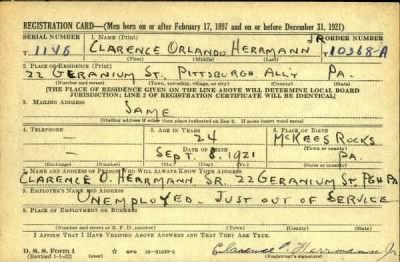 REGISTRATION CARD—(Men born on or after February 17, 1897 and on or before December 31, 1921)
SERIAL NUMBER 1. NAME (Print) ORDER NUMBER
1146 CLARENCE ORLANDO HERRMANN JR 10368-A
(First) (Middle) (Last)
2. PLACE OF RESIDENCE (Print)
22 GERANIUM ST. PITTSBURGH ALL'Y PA.
(Number and street) (Town, township, village, or city) (County) (State)
[THE PLACE OF RESIDENCE GIVEN ON THE LINE ABOVE WILL DETERMINE LOCAL BOARD
JURISDICTION; LINE 2 OF REGISTRATION CERTIFICATE WILL BE IDENTICAL]
3. MAILING ADDRESS
SAME
[Mailing address if other than place indicated on line 2. If same insert word same]
4. TELEPHONE 5. AGE IN YEARS 6. PLACE OF BIRTH
— 24 MCKEES ROCKS
DATE OF BIRTH (Town or county)
— SEPT. 8, 1921 PA.
(Exchange) (Number) (Mo.) (Day) (Yr.) (State or country)
7. NAME AND ADDRESS OF PERSON WHO WILL ALWAYS KNOW YOUR ADDRESS
CLARENCE O. HERRMANN SR. 22 GERANIUM ST. PGH PA
8. EMPLOYER'S NAME AND ADDRESS
UNEMPLOYED - JUST OUT OF SERVICE
9. PLACE OF EMPLOYMENT OR BUSINESS
(Number and street or R. F. D. number) (Town) (County) (State)
I AFFIRM THAT I HAVE VERIFIED ABOVE ANSWERS AND THAT THEY ARE TRUE.
D. S. S. Form 1 GPO Clarence O. Herrmann Jr
(Revised 1-1-42)